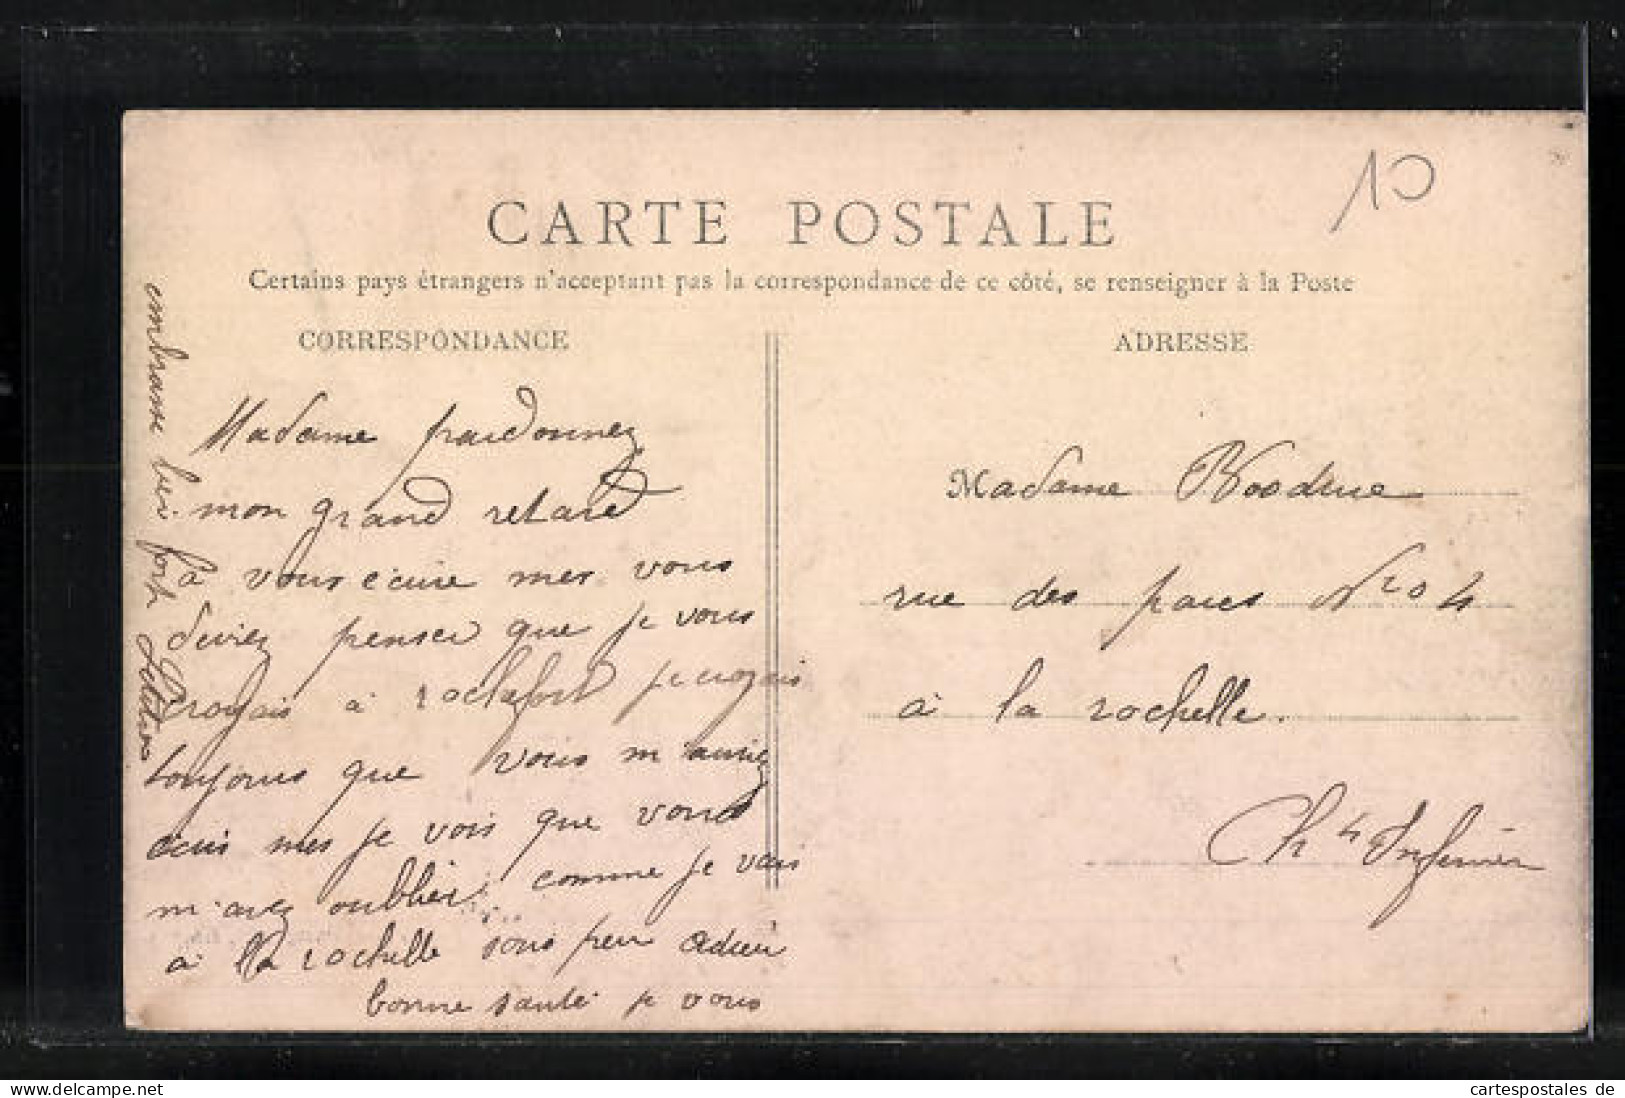 10
CARTE POSTALE
Certains pays étrangers n'acceptant pas la correspondance de ce côté, se renseigner à la Poste
CORRESPONDANCE
Madame pardonnez
mon grand retard
a vous ecrire mes vous
deviez penser que je vous
croyais a rochefort je croyais
toujours que vous m'auriez
ecris mes je vois que vous
m'avez oublier comme je vais
a la rochelle sous peu adieu
bonne santé je vous
embrasse bien fort
ADRESSE
Madame
rue des parcs No 4
à la rochelle.
Chte Inferieure
Delcampe.net
cartespostales de